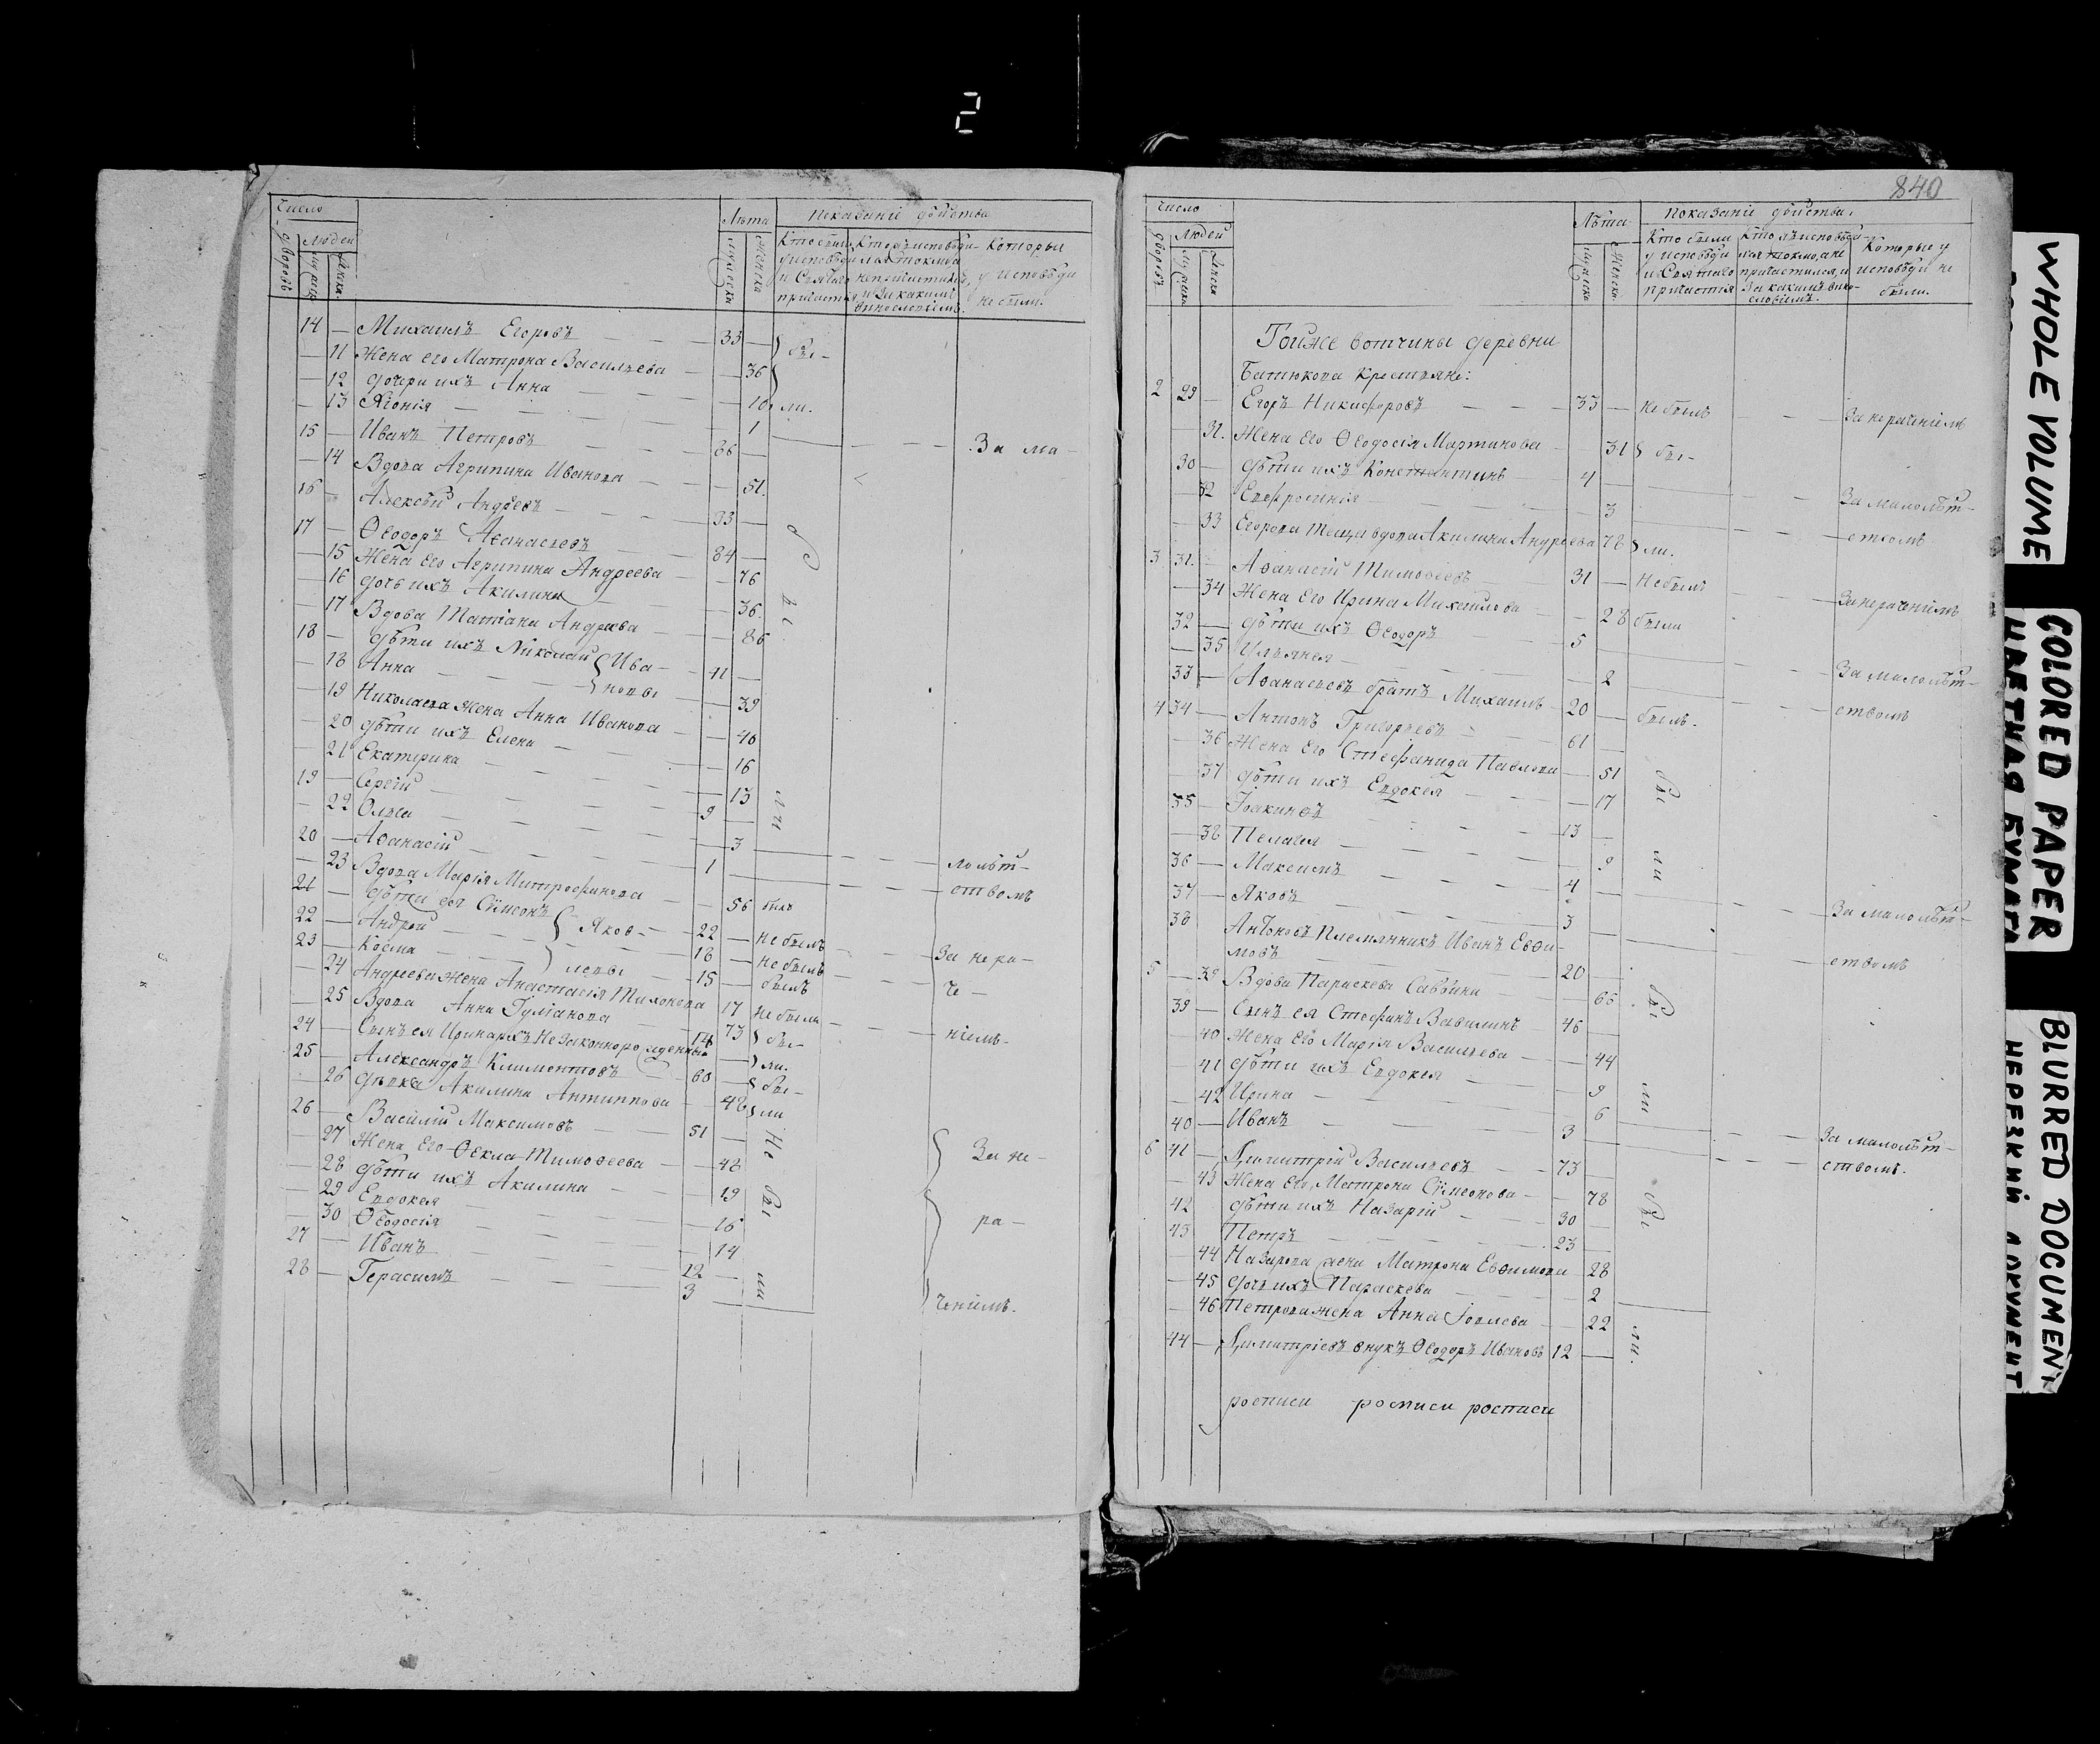 2
Число
Лѣта
Показаніе дѣйства
дворовъ
Людей
мужеска
женска
мужеска
женска
Кто были у исповѣди и Святаго причастія
Кто исповѣдался токмо, а не причастился, и за какимъ винословіемъ.
Которые у исповѣди не были.
14 — Михаилъ Егоровъ 33 — } бы-
— 11 Жена его Матрона Васильева — 36
— 12 дочери ихъ Анна — 10 ли.
— 13 Агонія — 1
15 — Иванъ Петровъ 36 — За ма-
— 14 Вдова Агрипина Иванова — 51.
16 — Алексѣй Андреевъ 33 —
17 — Ѳеодоръ Аѳанасьевъ 84 —
— 15 Жена его Агрипина Андреева — 76
— 16 дочь ихъ Акилина — 36.
— 17 Вдова Татіана Андреева — 86
18 — дѣти ихъ Николай } Ива- 41 —
— 18 Анна } новы — 39
— 19 Николаева жена Анна Иванова — 40
— 20 дѣти ихъ Елена — 16
— 21 Екатерина — 13
19 — Сергій 9 —
— 22 Ольга — 3
20 — Аѳанасій 1 — лолѣт-
— 23 Вдова Марія Митрофанова — 56 была ствомъ
21 — дѣти ея Сѵмеонъ 22 — не былъ
22 — Андрей } Яков- 18 — не былъ За нера-
23 — Косма } левы 15 — былъ че-
— 24 Андреева жена Анастасія Тихонова 17 не была
— 25 Вдова Анна Гуліанова 73 } бы- ніемъ-
24 — Сынъ ея Иринархъ Незаконнорожденный 14 — } ли.
25 — Александръ Климентовъ 60 — } бы-
— 26 дѣвка Акилина Антиппова — 48 } ли
26 — Василій Максимовъ 51 — Не
— 27 Жена Его Ѳекла Тимоѳеева — 48 За не-
— 28 дѣти ихъ Акилина — 19
— 29 Евдокея — 16 бы
— 30 Ѳеодосія — 14 ра-
27 — Иванъ 12 —
28 — Герасимъ 3 ли
ченіемъ.
840
Число
Лѣта
Показаніе дѣйства.
дворовъ
Людей
мужеска
женска
мужеска
женска
Кто были у исповѣди и Святаго причастія
Кто исповѣдался токмо, а не причастился, и за какимъ винословіемъ.
Которые у исповѣди не были.
Тойже вотчины деревни
Батюкова Крестьяне:
2 29 — Егоръ Никифоровъ 33 — не былъ За нераченіемъ
31. Жена Его Ѳеодосія Мартинова 31 } бы-
30 — дѣти ихъ Константинъ 4
— 32 Евфросинія — 3 За малолѣт-
— 33 Егорова теща вдова Акилина Андреева 78 } ли. ствомъ
3 31. — Аѳанасій Тимоѳеевъ 31 — Не былъ
— 34 Жена Его Ирина Михайлова — 28 была За нераченіемъ
32 — дѣти ихъ Ѳеодоръ 5
— 35 Ульянея — 2 За малолѣт-
33 — Аѳанасьевъ братъ Михаилъ 20 — былъ. ствомъ
4 34 — Антонъ Григорьевъ 61 —
— 36 Жена Его Стефанида Павлова — 51
— 37 дѣти ихъ Евдокея — 17 бы
35 — Іоакинѳъ 13 —
— 38 Пелагея — 9 ли
36 — Максимъ 4 —
37 — Яковъ 3 За малолѣт-
38 Антоновъ Племянникъ Иванъ Евѳи-
мовъ 20 ствомъ
5 — 39 Вдова Параскева Саввина — 66 бы
39 — Сынъ ея Стефанъ Вавилинъ 46 —
— 40 Жена Его Марія Васильева — 44
— 41 дѣти ихъ Евдокея — 9
— 42 Ирина — 6 ли
40 — Иванъ 3 За малолѣт-
6 41 — Димитрій Васильевъ 73 ствомъ.
— 43 Жена Его Матрона Сѵмеонова — 78
42 дѣти ихъ Назарій 30 — бы
43 Петръ 23 —
— 44 Назарова жена Матрона Евѳимова 28
— 45 дочь ихъ Параскева 2
— 46 Петрова жена Анна Іовлева 22
44 — Димитріевъ внукъ Ѳеодоръ Ивановъ 12 — ли.
росписи росписи росписи
WHOLE VOLUME
COLORED PAPER
ЦВЕТНАЯ БУМАГА
BLURRED DOCUMENT
НЕРЕЗКИЙ ДОКУМЕНТ